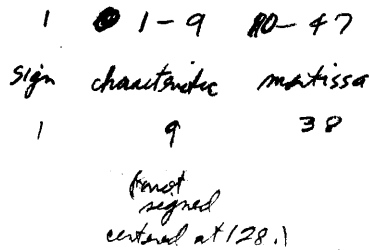 1 1-9 10-47
sign characteristic mantissa
1 9 38
(not
signed
centered at 128.)